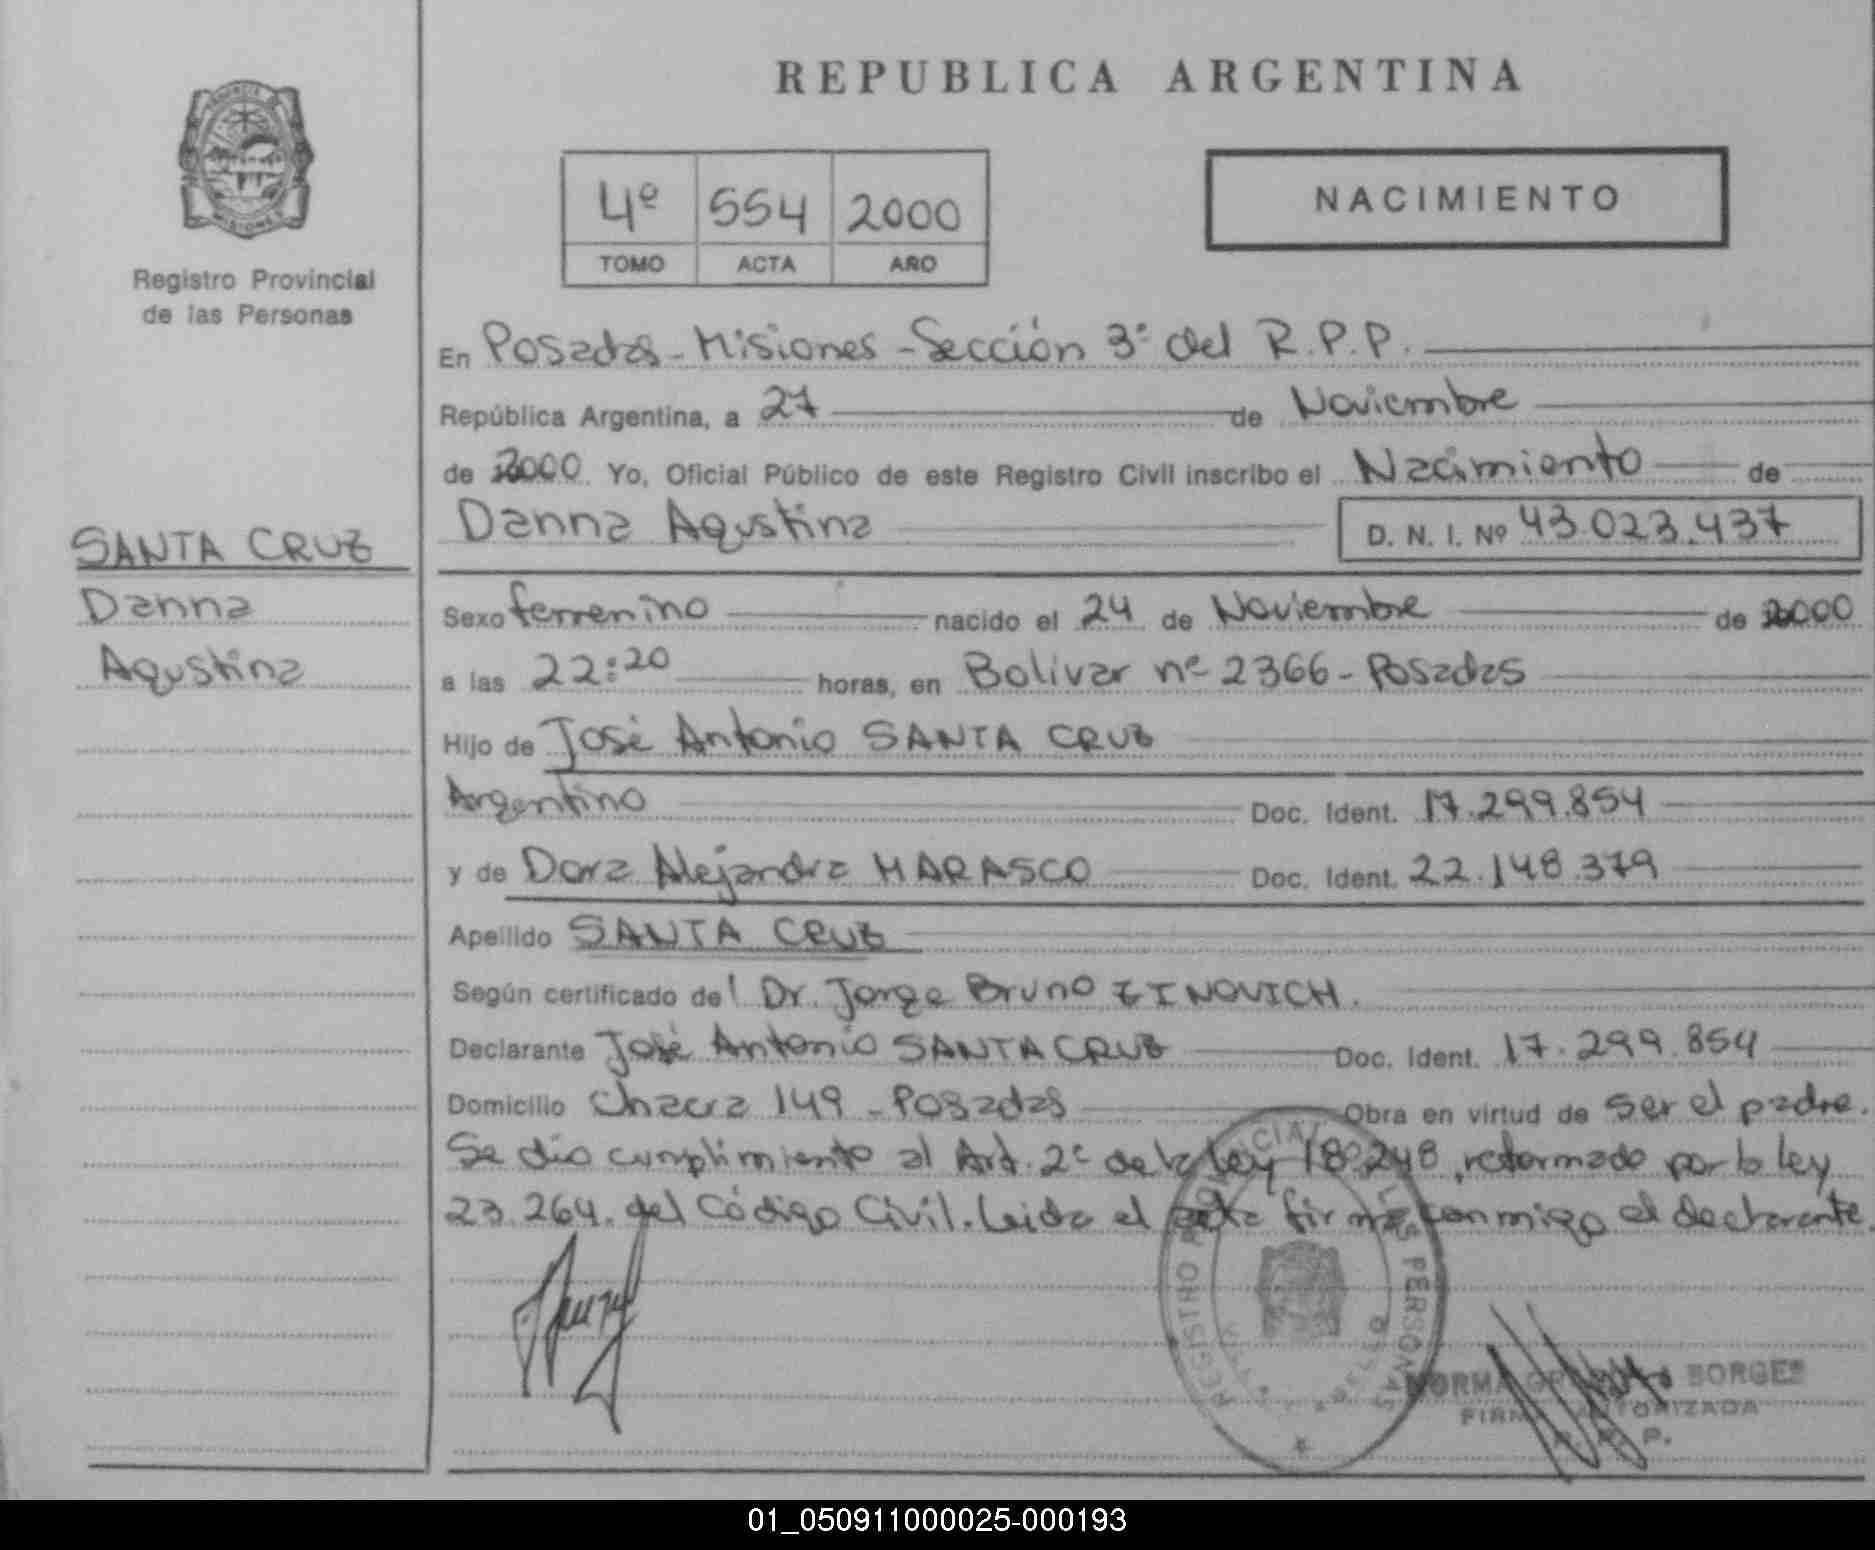 REPUBLICA ARGENTINA
PROVINCIA DE MISIONES
Registro Provincial
de las Personas
4º 554 2000
TOMO ACTA AÑO
NACIMIENTO
En Posadas - Misiones - Sección 3ª del R.P.P.
República Argentina, a 27 de Noviembre
de 2000. Yo, Oficial Público de este Registro Civil inscribo el Nacimiento de
Danna Agustina D. N. I. Nº 43.023.437
SANTA CRUZ
Danna
Agustina
Sexo femenino nacido el 24 de Noviembre de 2000
a las 22:20 horas, en Bolivar nº 2366 - Posadas
Hijo de José Antonio SANTA CRUZ
Argentino Doc. Ident. 17.299.854
y de Dora Alejandra MARASCO Doc. Ident. 22.148.379
Apellido SANTA CRUZ
Según certificado del Dr. Jorge Bruno ZINOVICH.
Declarante José Antonio SANTA CRUZ Doc. Ident. 17.299.854
Domicilio Chacra 149 - Posadas Obra en virtud de ser el padre.
Se dio cumplimiento al Art. 2º de la ley 18.248, reformado por la ley
23.264. del Código Civil. Leida el acta firma conmigo el declarante
REGISTRO PROVINCIAL DE LAS PERSONAS
NORMA BORGES
FIRMA AUTORIZADA
R. P. P.
01_050911000025-000193